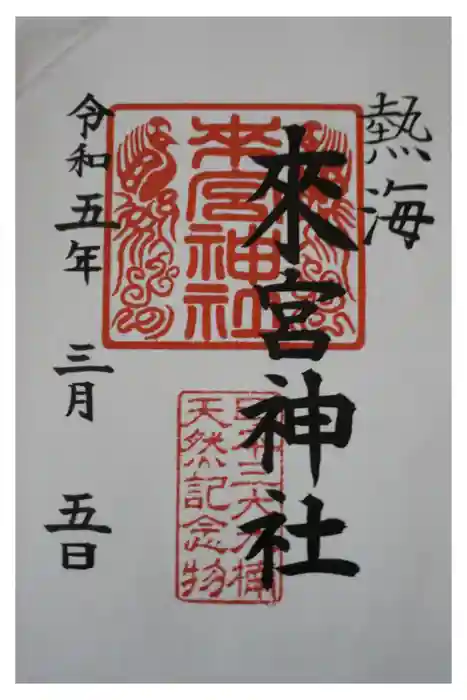 熱海
來宮神社
來宮神社
日本三大大楠
天然記念物
令和五年 三月 五日